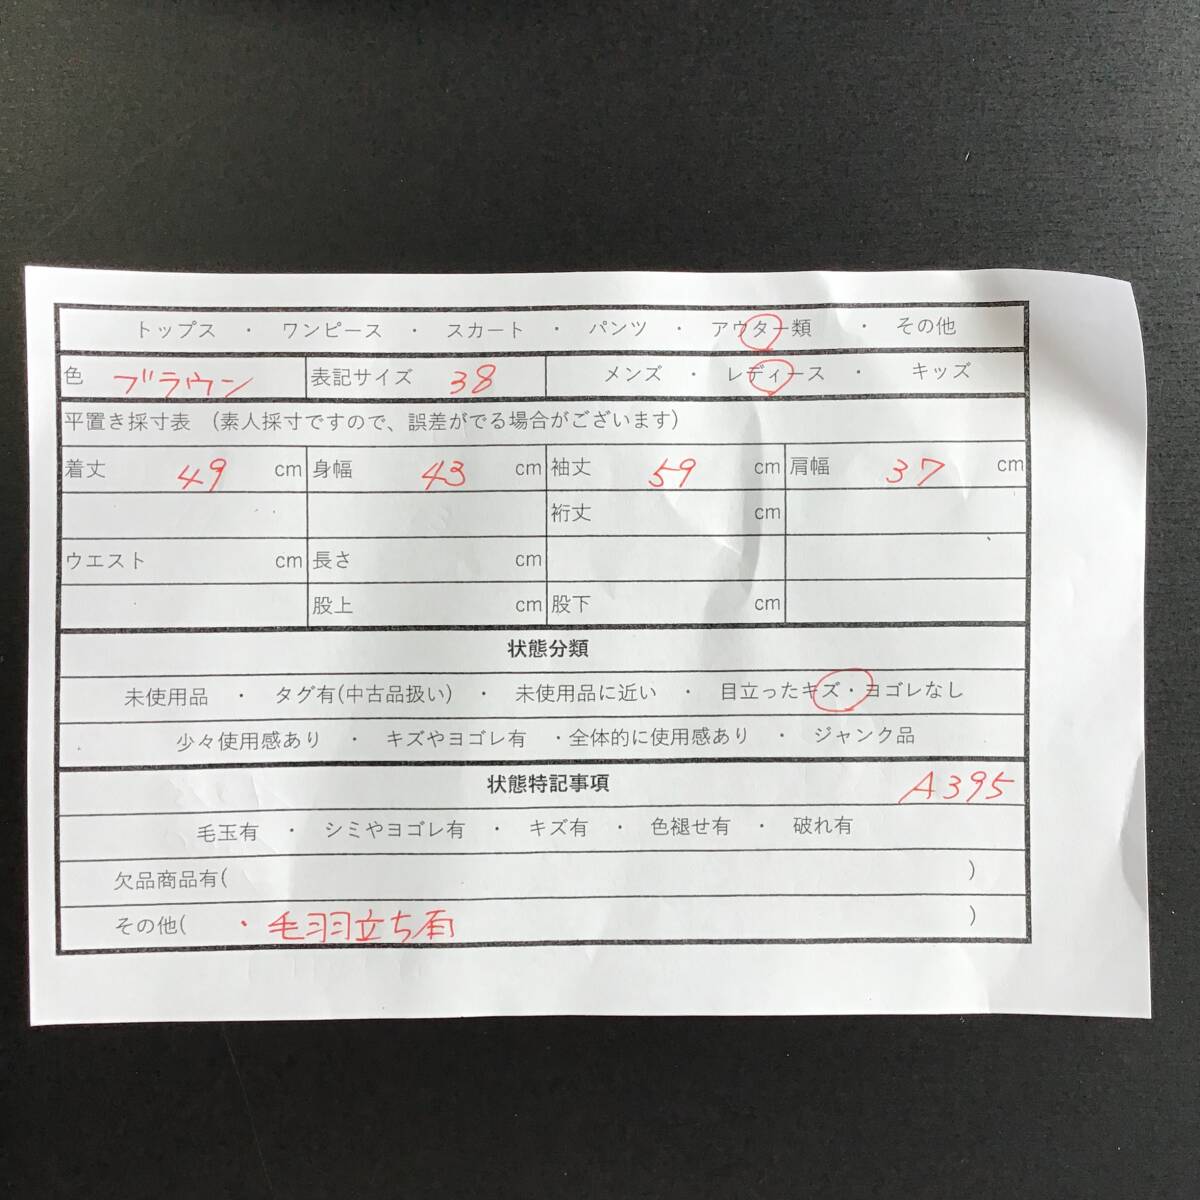 トップス ・ ワンピース ・ スカート ・ パンツ ・ アウター類 ・ その他
色 ブラウン 表記サイズ 38 メンズ ・ レディース ・ キッズ
平置き採寸表 (素人採寸ですので、誤差がでる場合がございます)
着丈 49 cm 身幅 43 cm 袖丈 59 cm 肩幅 37 cm
裄丈 cm
ウエスト cm 長さ cm
股上 cm 股下 cm
状態分類
未使用品 ・ タグ有(中古品扱い) ・ 未使用品に近い ・ 目立ったキズ・ヨゴレなし
少々使用感あり ・ キズやヨゴレ有 ・全体的に使用感あり ・ ジャンク品
状態特記事項 A395
毛玉有 ・ シミやヨゴレ有 ・ キズ有 ・ 色褪せ有 ・ 破れ有
欠品商品有( )
その他( ・毛羽立ち有 )